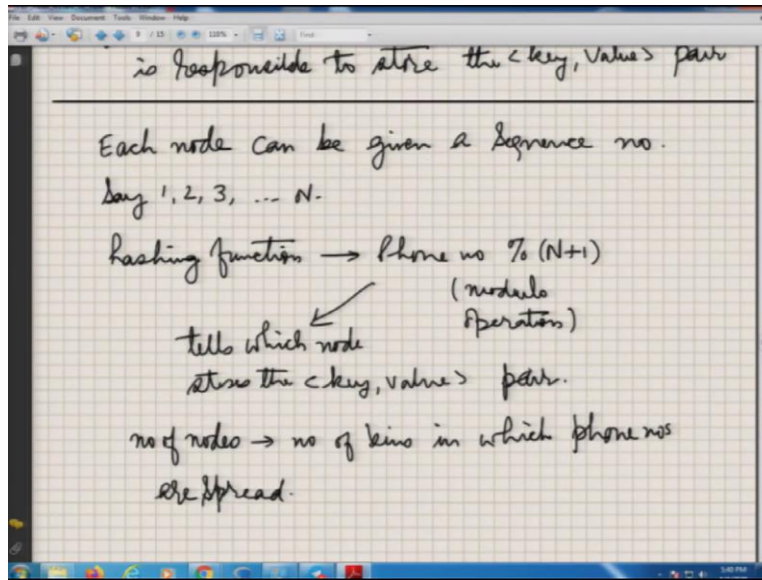 File Edit View Document Tools Window Help
9 / 13 118% Find
is responsible to store the <key, value> pair
Each node can be given a Sequence no.
Say 1, 2, 3, ... N.
hashing function → Phone no % (N+1)
(modulo
operation)
tells which node
stores the <key, value> pair.
no of nodes → no of bins in which phone nos
are spread.
5:40 PM